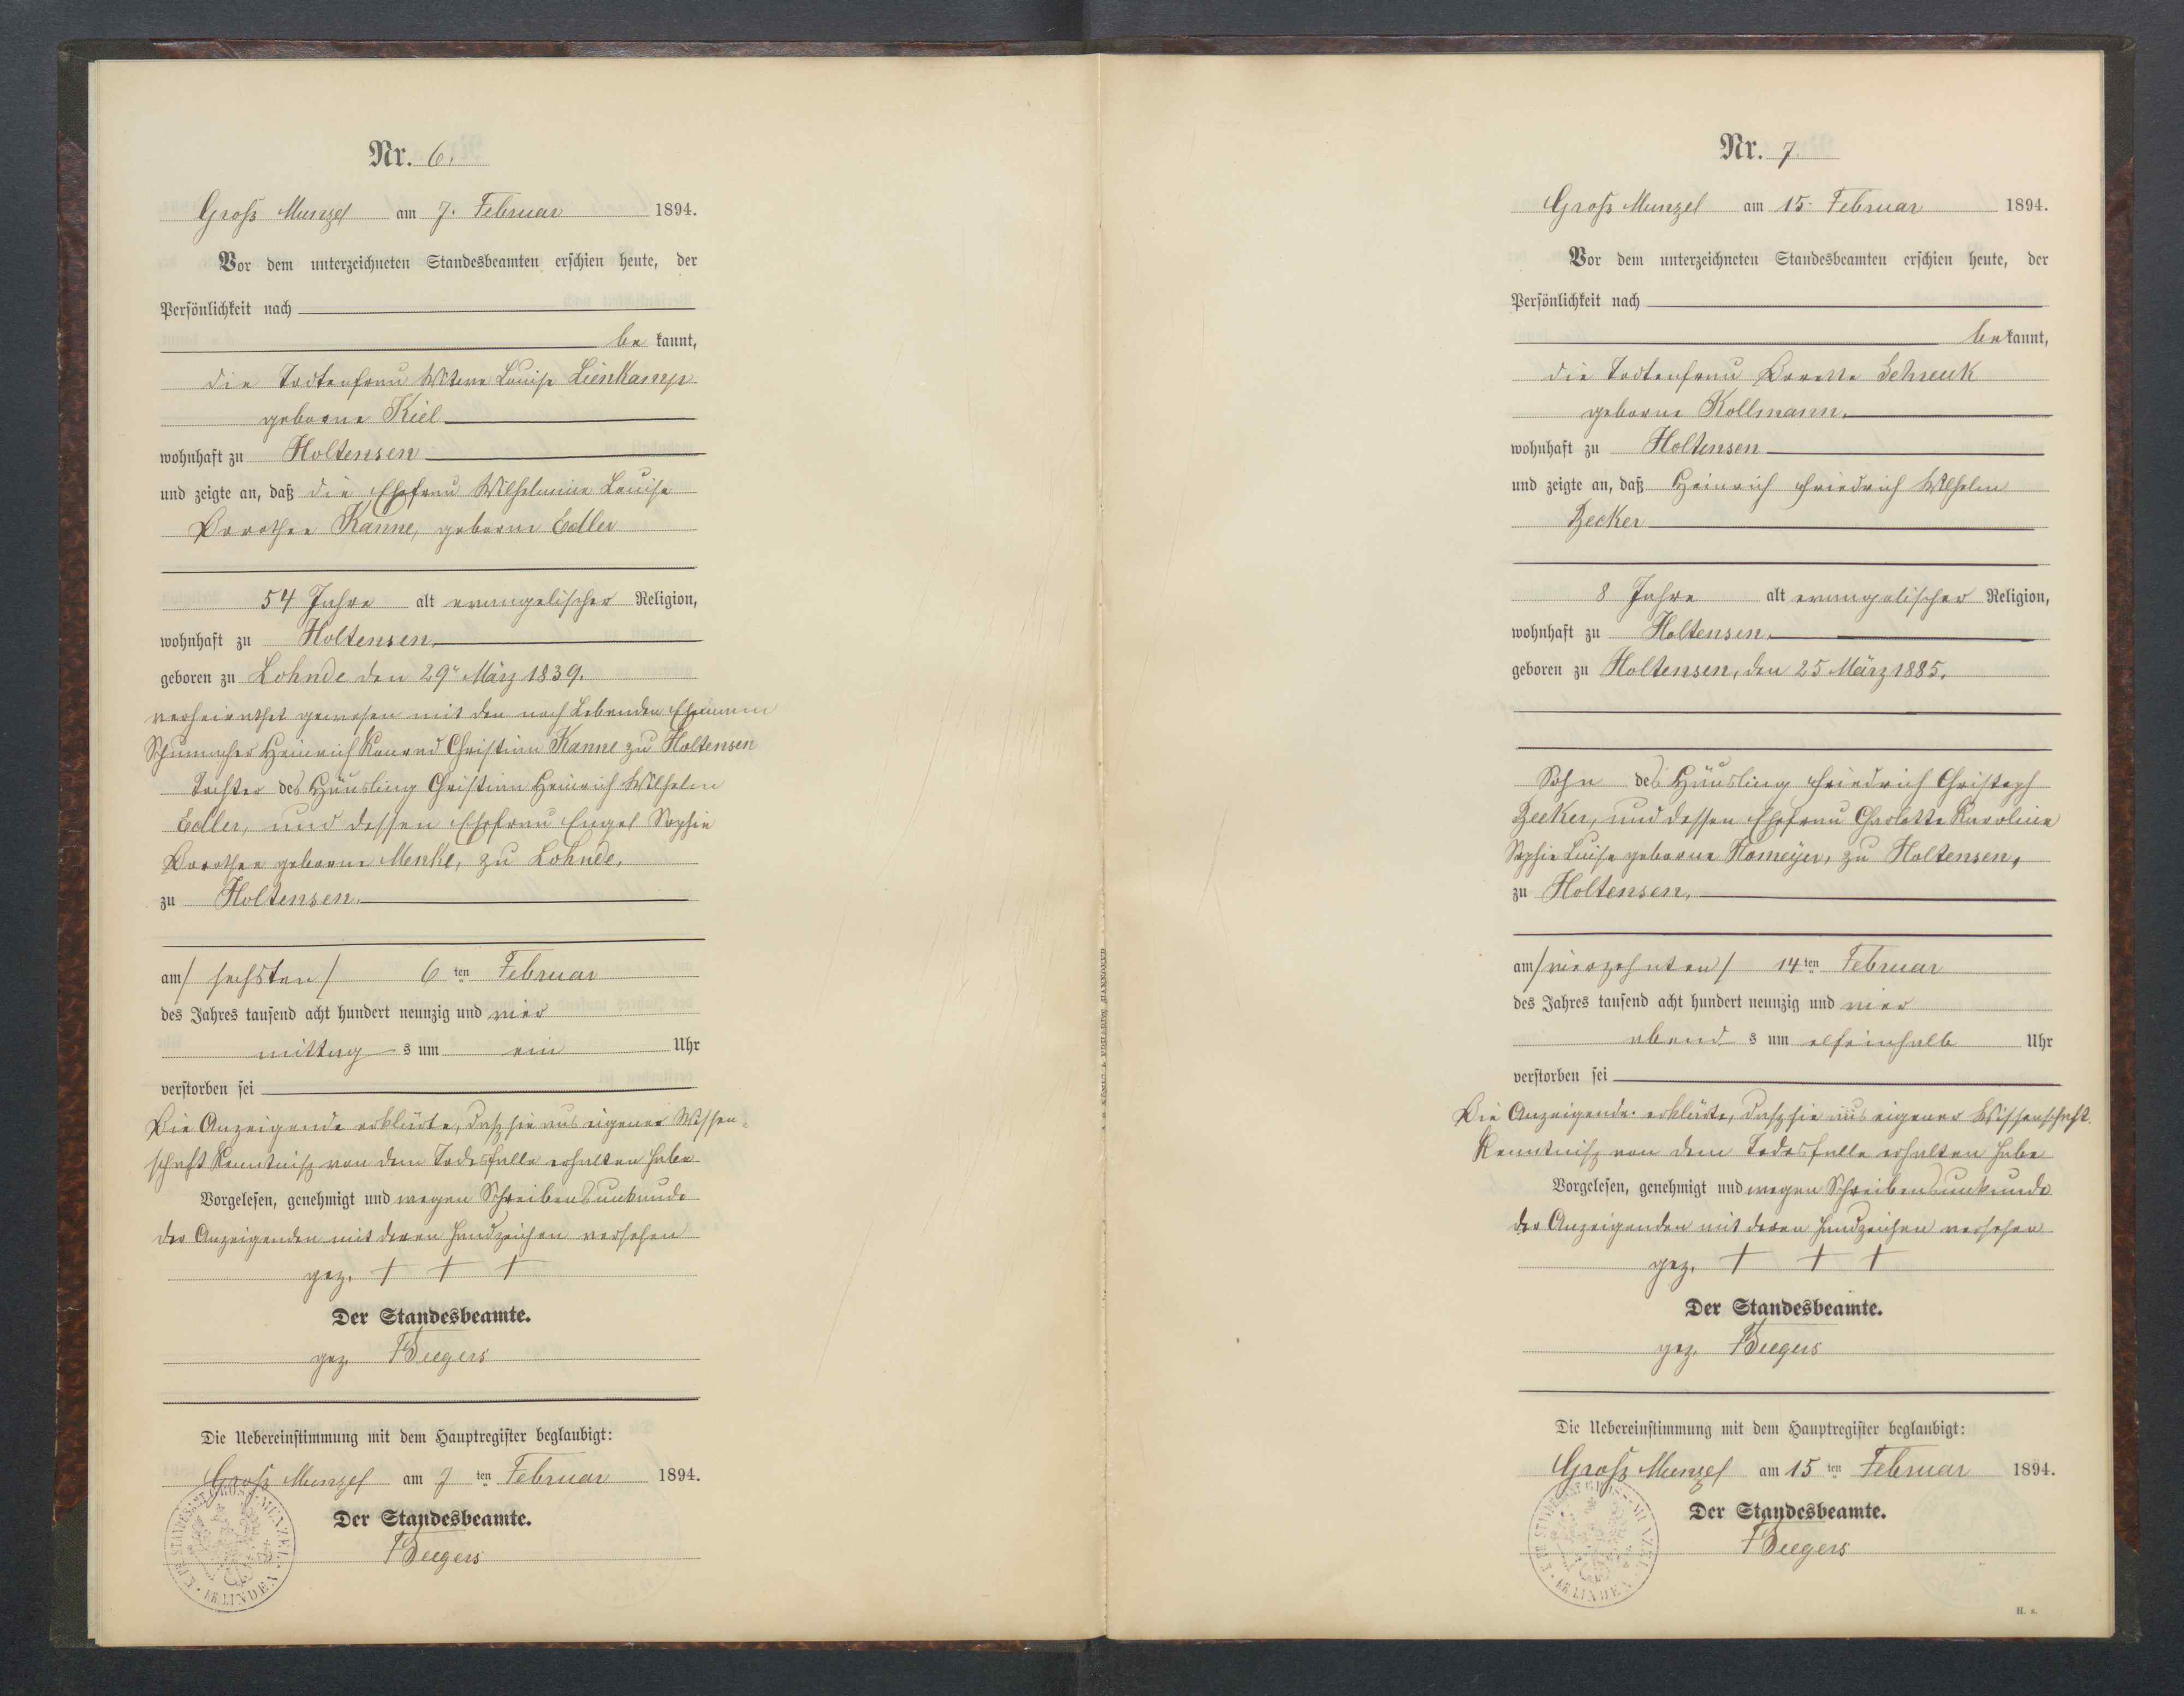 Nr. 6.
Groß Munzel am 7. Februar 1894.
Vor dem unterzeichneten Standesbeamten erschien heute, der
Persönlichkeit nach
be kannt,
die Todtenfrau Witwe Louise Lienkamp
geborne Kiel
wohnhaft zu Holtensen
und zeigte an, daß die Ehefrau Wilhelmine Louise
Dorothee Kanne, geborne Edler
54 Jahre alt evangelischer Religion,
wohnhaft zu Holtensen.
geboren zu Lohnde den 29ten März 1839.
verheirathet gewesen mit den noch Lebenden Ehemann
Schumacher Heinrich Konrad Christian Kanne zu Holtensen
Tochter des Häusling Christian Heinrich Wilhelm
Edler, und dessen Ehefrau Engel Sophie
Dorothee geborne Menke, zu Lohnde.
zu Holtensen.
am / sechsten / 6 ten Februar
des Jahres tausend acht hundert neunzig und vier
mittag s um ein Uhr
verstorben sei
Die Anzeigende erklärte, daß sie aus eigener Wissen-
schaft Kenntniß von dem Todesfalle erhalten habe
Vorgelesen, genehmigt und wegen Schreibensunkunde
der Anzeigenden mit deren Handzeichen versehen
gez. + + +
Der Standesbeamte.
gez.
Die Uebereinstimmung mit dem Hauptregister beglaubigt:
Groß Munzel am 7 ten Februar 1894.
Der Standesbeamte.
STANDESAMT GROSS-MUNZEL
KR. LINDEN
Nr. 7.
Groß Munzel am 15. Februar 1894.
Vor dem unterzeichneten Standesbeamten erschien heute, der
Persönlichkeit nach
be kannt,
die Todtenfrau Dorette Schrenk
geborne Kollmann.
wohnhaft zu Holtensen
und zeigte an, daß Heinrich Friedrich Wilhelm
Becker
8 Jahre alt evangelischer Religion,
wohnhaft zu Holtensen.
geboren zu Holtensen, den 25 März 1885.
Sohn des Häusling Friedrich Christoph
Becker, und dessen Ehefrau Charlotte Karoline
Sophie Luise geborne Homeyer, zu Holtensen,
zu Holtensen.
am / vierzehnten / 14 ten Februar
des Jahres tausend acht hundert neunzig und vier
abend s um elfeinhalb Uhr
verstorben sei
Die Anzeigende erklärte, daß sie aus eigener Wissenschaft
Kenntniß von dem Todesfalle erhalten habe
Vorgelesen, genehmigt und wegen Schreibensunkunde
der Anzeigenden mit deren Handzeichen versehen
gez. + + +
Der Standesbeamte.
gez.
Die Uebereinstimmung mit dem Hauptregister beglaubigt:
Groß Munzel am 15 ten Februar 1894.
Der Standesbeamte.
STANDESAMT GROSS-MUNZEL
KR. LINDEN